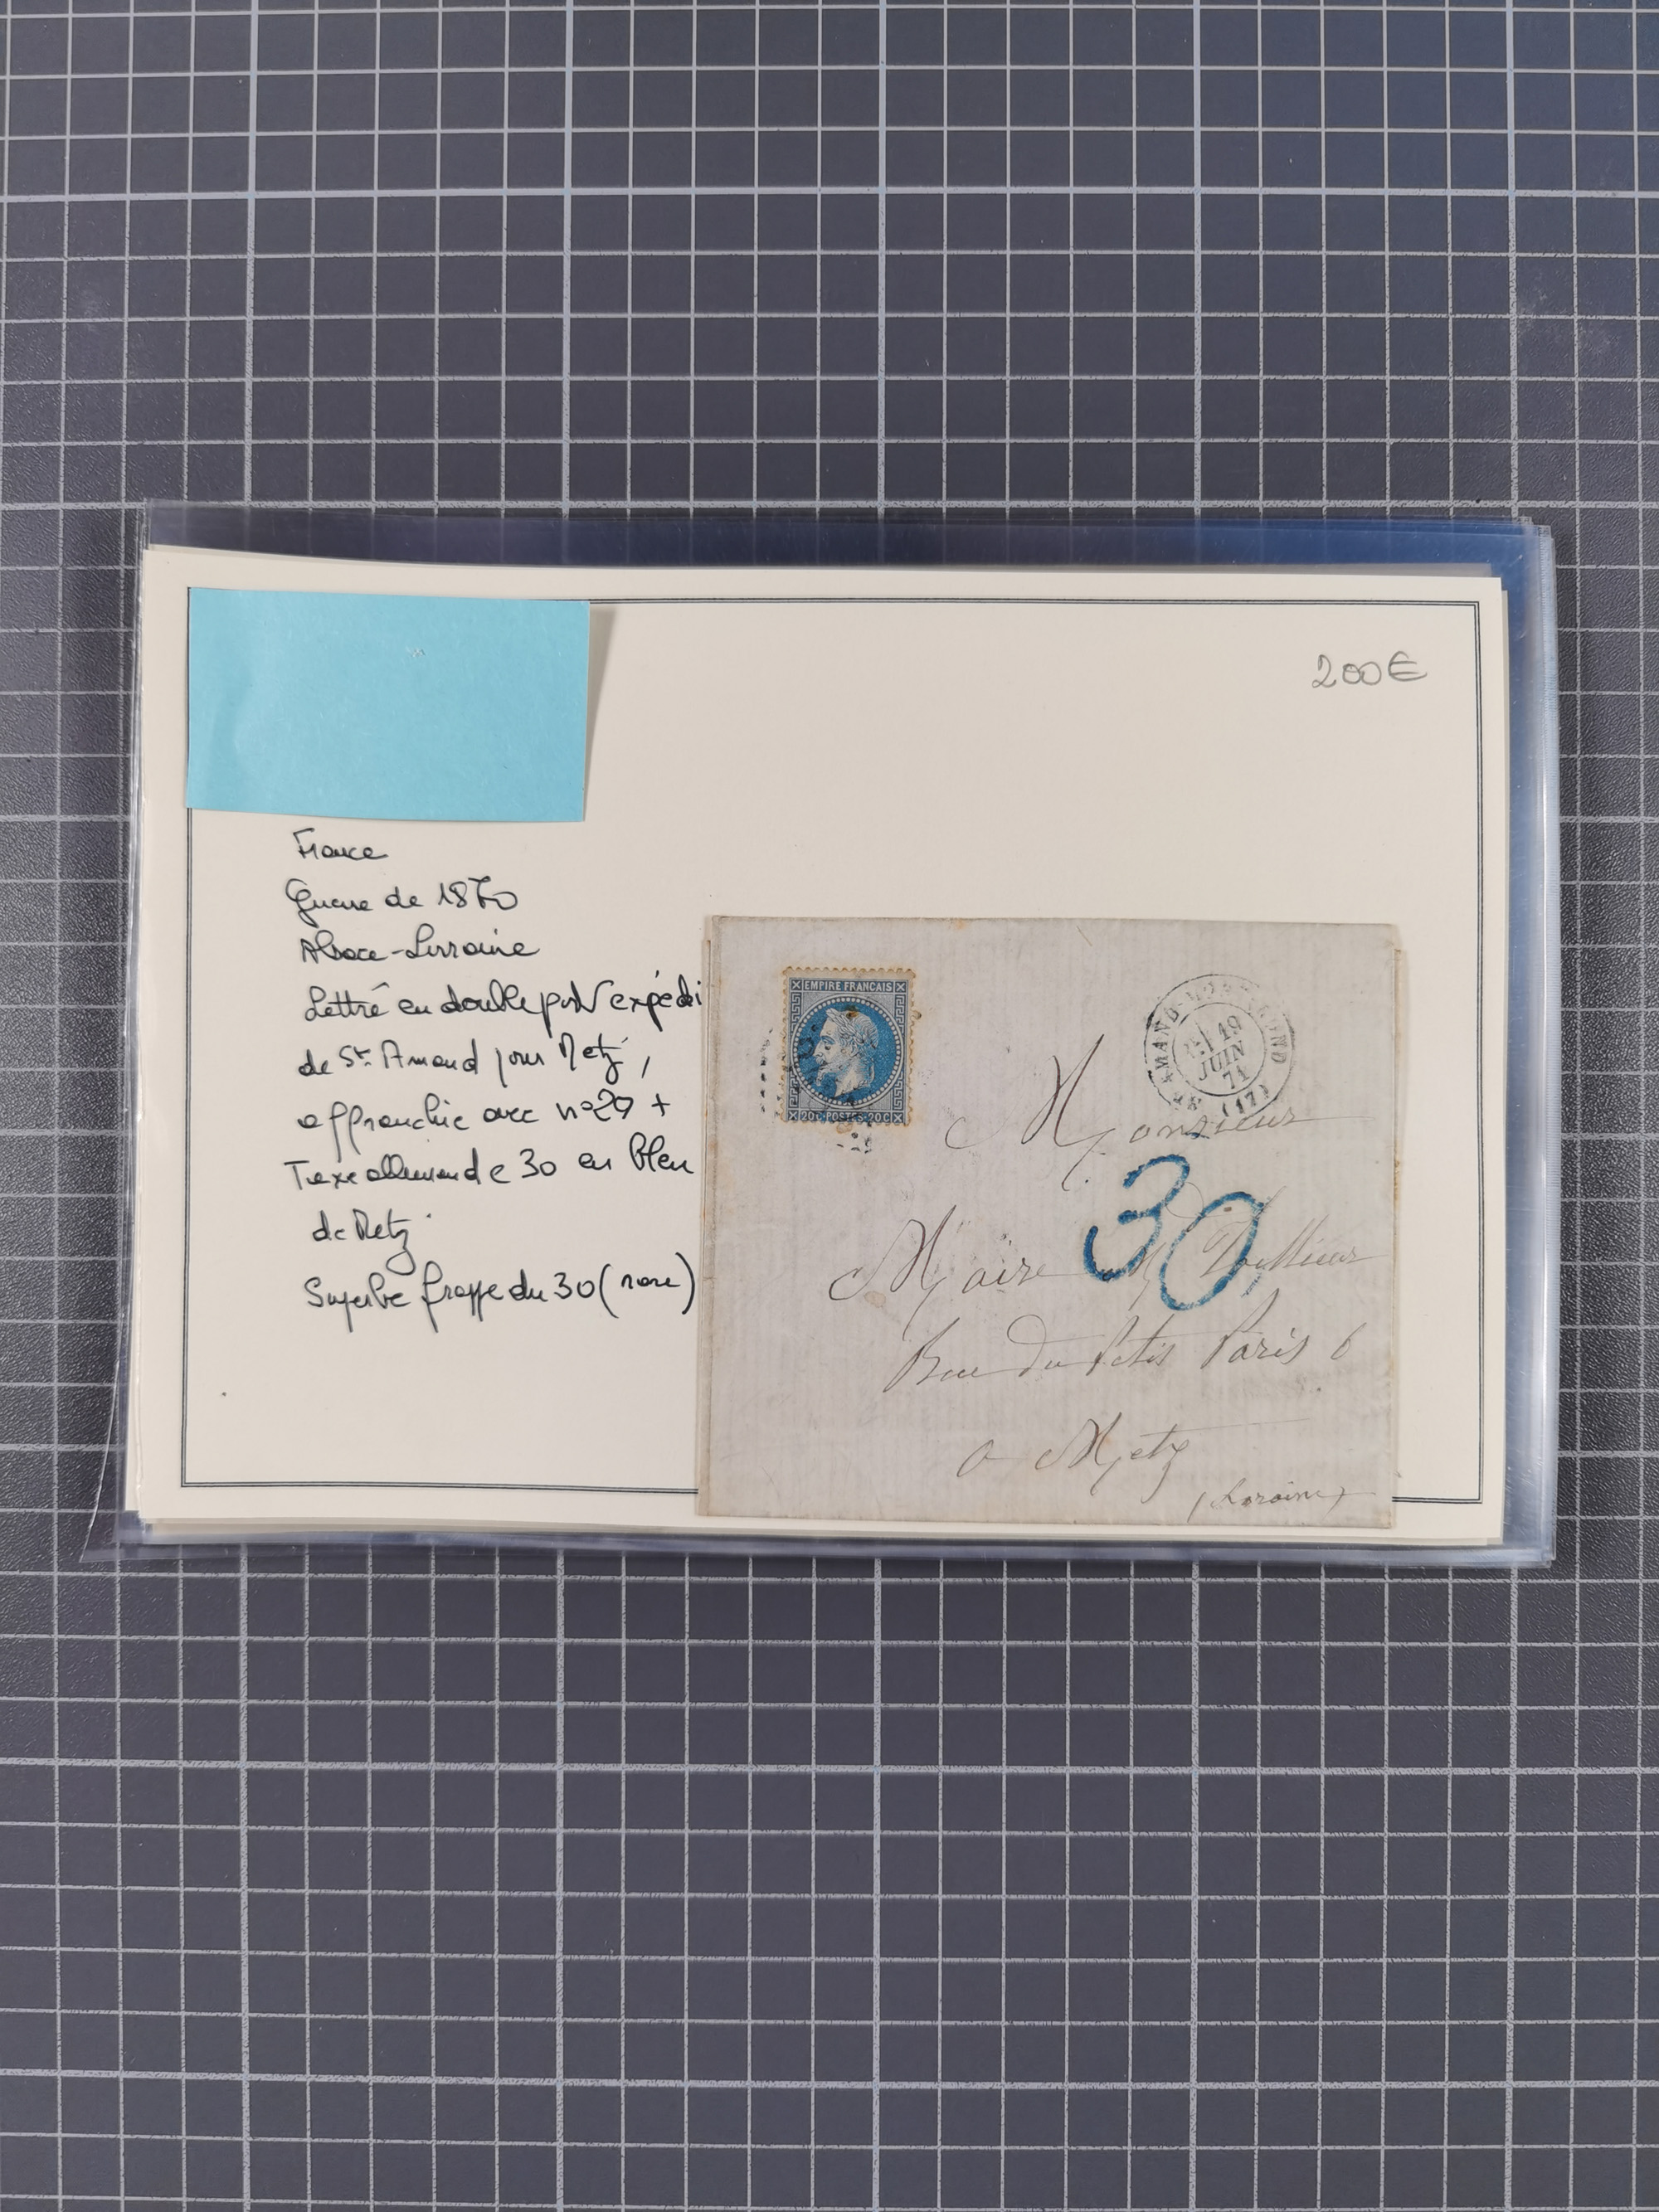 200€
France
Guerre de 1870
Alsace-Lorraine
Lettre en double port expédi
de St Amand pour Metz,
affranchie avec n°29 +
Taxe allemande 30 en bleu
de Metz.
Superbe frappe du 30 (rare)
EMPIRE FRANÇAIS
20C POSTES 20C
ST AMAND-MONT-ROND
19
JUIN
71
(17)
Monsieur
30
Maire
Rue du Petit Paris 6
a Metz
(Loraine)